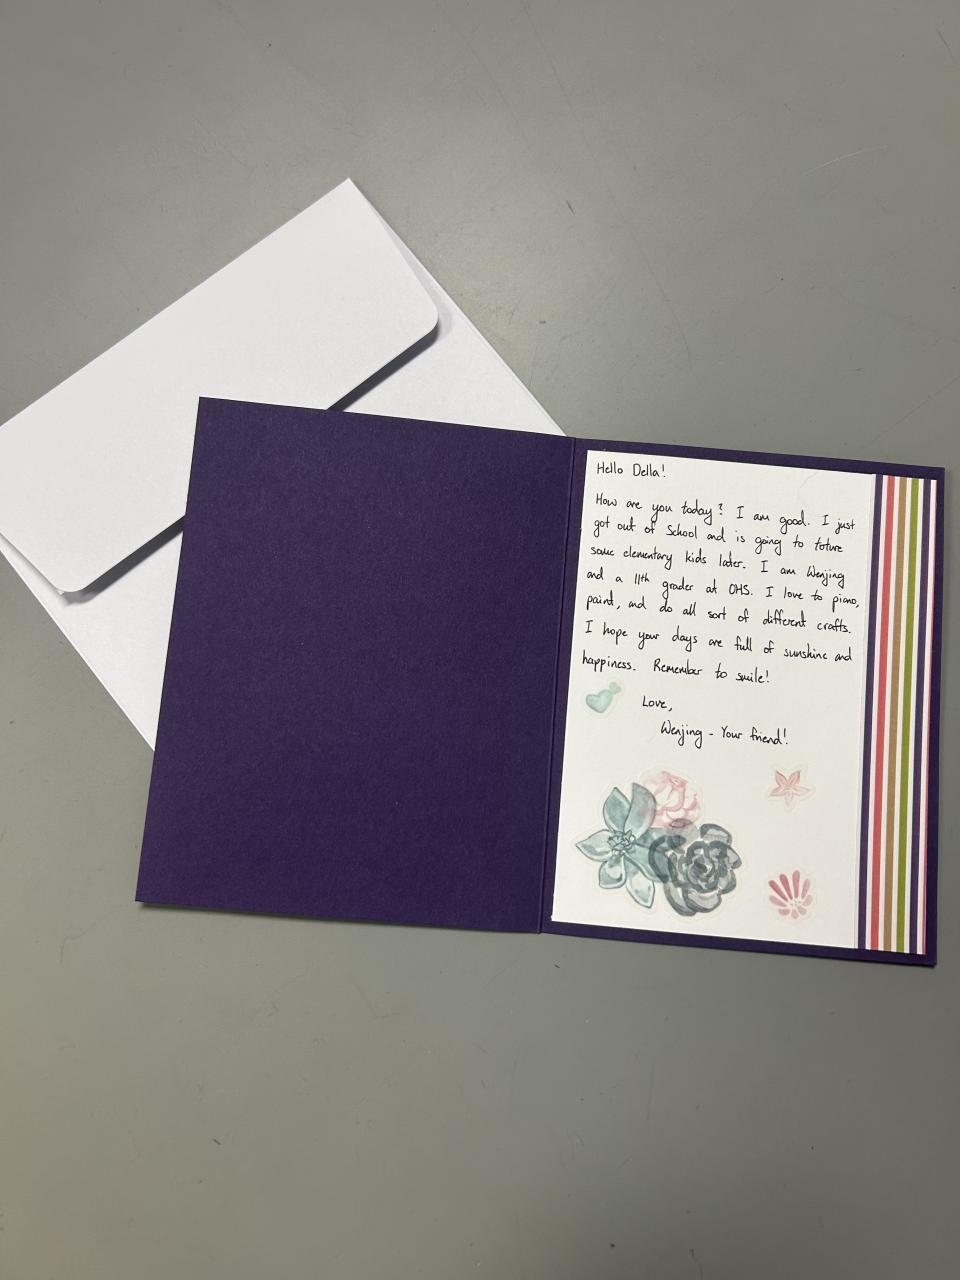 Hello Della!
How are you today? I am good. I just
got out of School and is going to toture
some elementary kids later. I am Wenjing
and a 11th grader at OHS. I love to piano,
paint, and do all sort of different crafts.
I hope your days are full of sunshine and
happiness. Remember to smile!
Love,
Wenjing - Your friend!